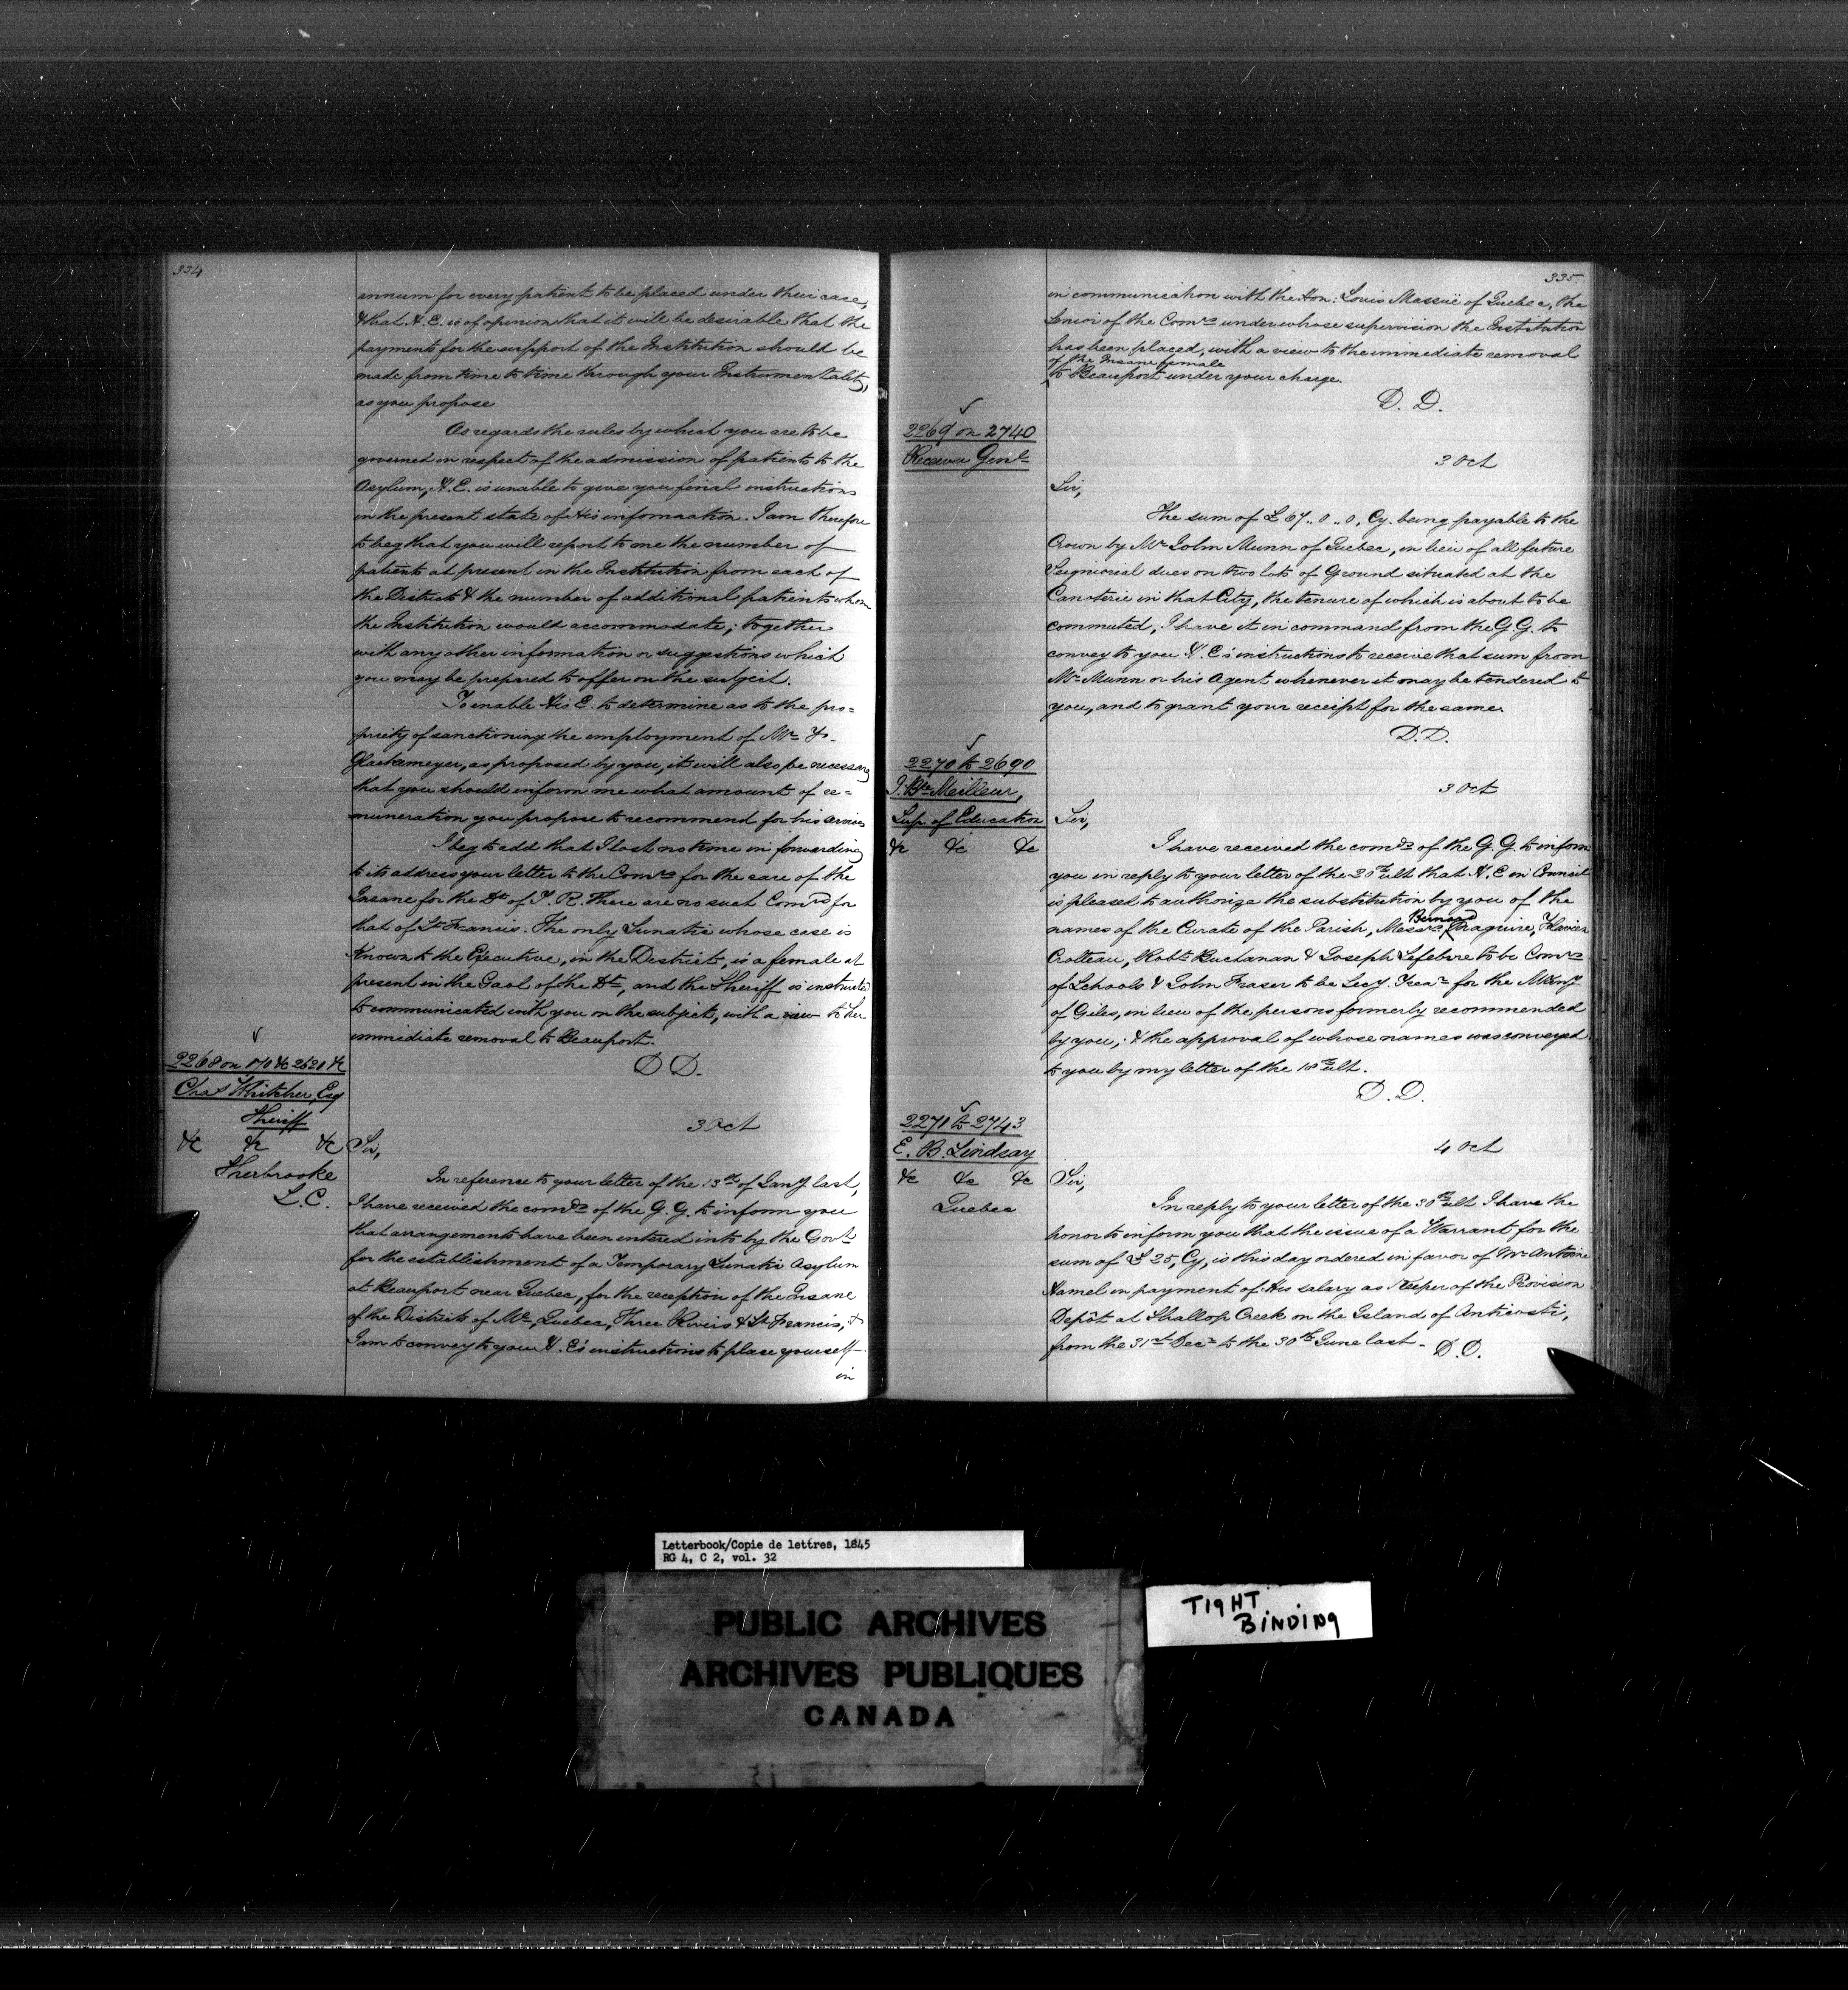 334
annum for every patient to be placed under their care,
& that H. E. is of opinion that it will be desirable that the
payments for the support of the Institution should be
made from time to time through your Instrumentality,
as you propose
As regards the rules by which you are to be
governed in respect of the admission of patients to the
Asylum, H. E. is unable to give you final instructions
in the present state of His information. I am therefore
to beg that you will report to me the number of
patients at present in the Institution from each of
the Districts & the number of additional patients whom
the Institution would accommodate; together
with any other information or suggestions which
you may be prepared to offer on the subject.
To enable His E. to determine as to the pro=
priety of sanctioning the employment of Mr
Glackemeyer, as proposed by you, it will also be necessary
that you should inform me what amount of re=
muneration you propose to recommend for his services
I beg to add that I lost no time in forwarding
to its address your letter to the Comrs for the care of the
Insane for the Dt of T. R. There are no such Comrs for
that of St Francis. The only Lunatic whose case is
known to the Executive, in the District, is a female at
present in the Gaol of the Dt, and the Sheriff is instructed
to communicated with you on the subject, with a view to her
immediate removal to Beauport.
D D.
2268 on &c 2620 &c
Chas Whitcher, Esq
Sheriff
&c &c &c
Sherbrooke
L. C.
3 Oct
Sir,
In reference to your letter of the 13th of Jany last,
I have received the comds of the G. G. to inform you
that arrangements have been entered into by the Govt
for the establishment of a Temporary Lunatic Asylum
at Beauport near Quebec, for the reception of the Insane
of the Districts of Ml, Quebec, Three Rivers & St Francis, &
I am to convey to your H. E's instructions to place yourself
in
335
in communication with the Hon: Louis Massüe of Quebec, the
Senior of the Comrs under whose supervision the Institution
has been placed, with a view to the immediate removal
of the Insane female
to Beauport under your charge.
D. D.
2269 on 2740
Receiver Genl
3 Oct
Sir,
The sum of £67..0..0, Cy. being payable to the
Crown by Mr John Munn of Quebec, in lieu of all future
Seigniorial dues on two lots of Ground situated at the
Canoterie in that City, the tenure of which is about to be
commuted, I have it in command from the G. G. to
convey to you H. E's instructions to receive that sum from
Mr Munn or his Agent whenever it may be tendered to
you, and to grant your receipt for the same.
D. D.
2270 to 2690
J. Bte Meilleur,
Sup. of Education
&c &c &c
3 Oct
Sir,
I have received the comds of the G. G. to inform
you in reply to your letter of the ult that H. E in Council
is pleased to authorize the substitution by you of the
names of the Curate of the Parish, Messrs Bernard Maguire, Flavien
Crotteau, Robt Buchanan & Joseph Lefebvre to be Comrs
of Schools & John Fraser to be Secy. Trear for the
of Giles, in lieu of the persons formerly recommended
by you; & the approval of whose names was conveyed
to you by my letter of the 18th ult.
D. D.
2271 to 2743
E. B. Lindsay
&c &c &c
Quebec
4 Oct
Sir,
In reply to your letter of the 30th ult I have the
honor to inform you that the issue of a Warrant for the
sum of £25, Cy, is this day ordered in favor of Mr Antoine
Hamel in payment of His salary as Keeper of the Provision
Depôt at Shallop Creek on the Island of Anticosti,
from the 31st Decr to the 30th June last - D. D.
Letterbook/Copie de lettres, 1845
RG 4, C 2, vol. 32
PUBLIC ARCHIVES
ARCHIVES PUBLIQUES
CANADA
TIGHT
BINDING